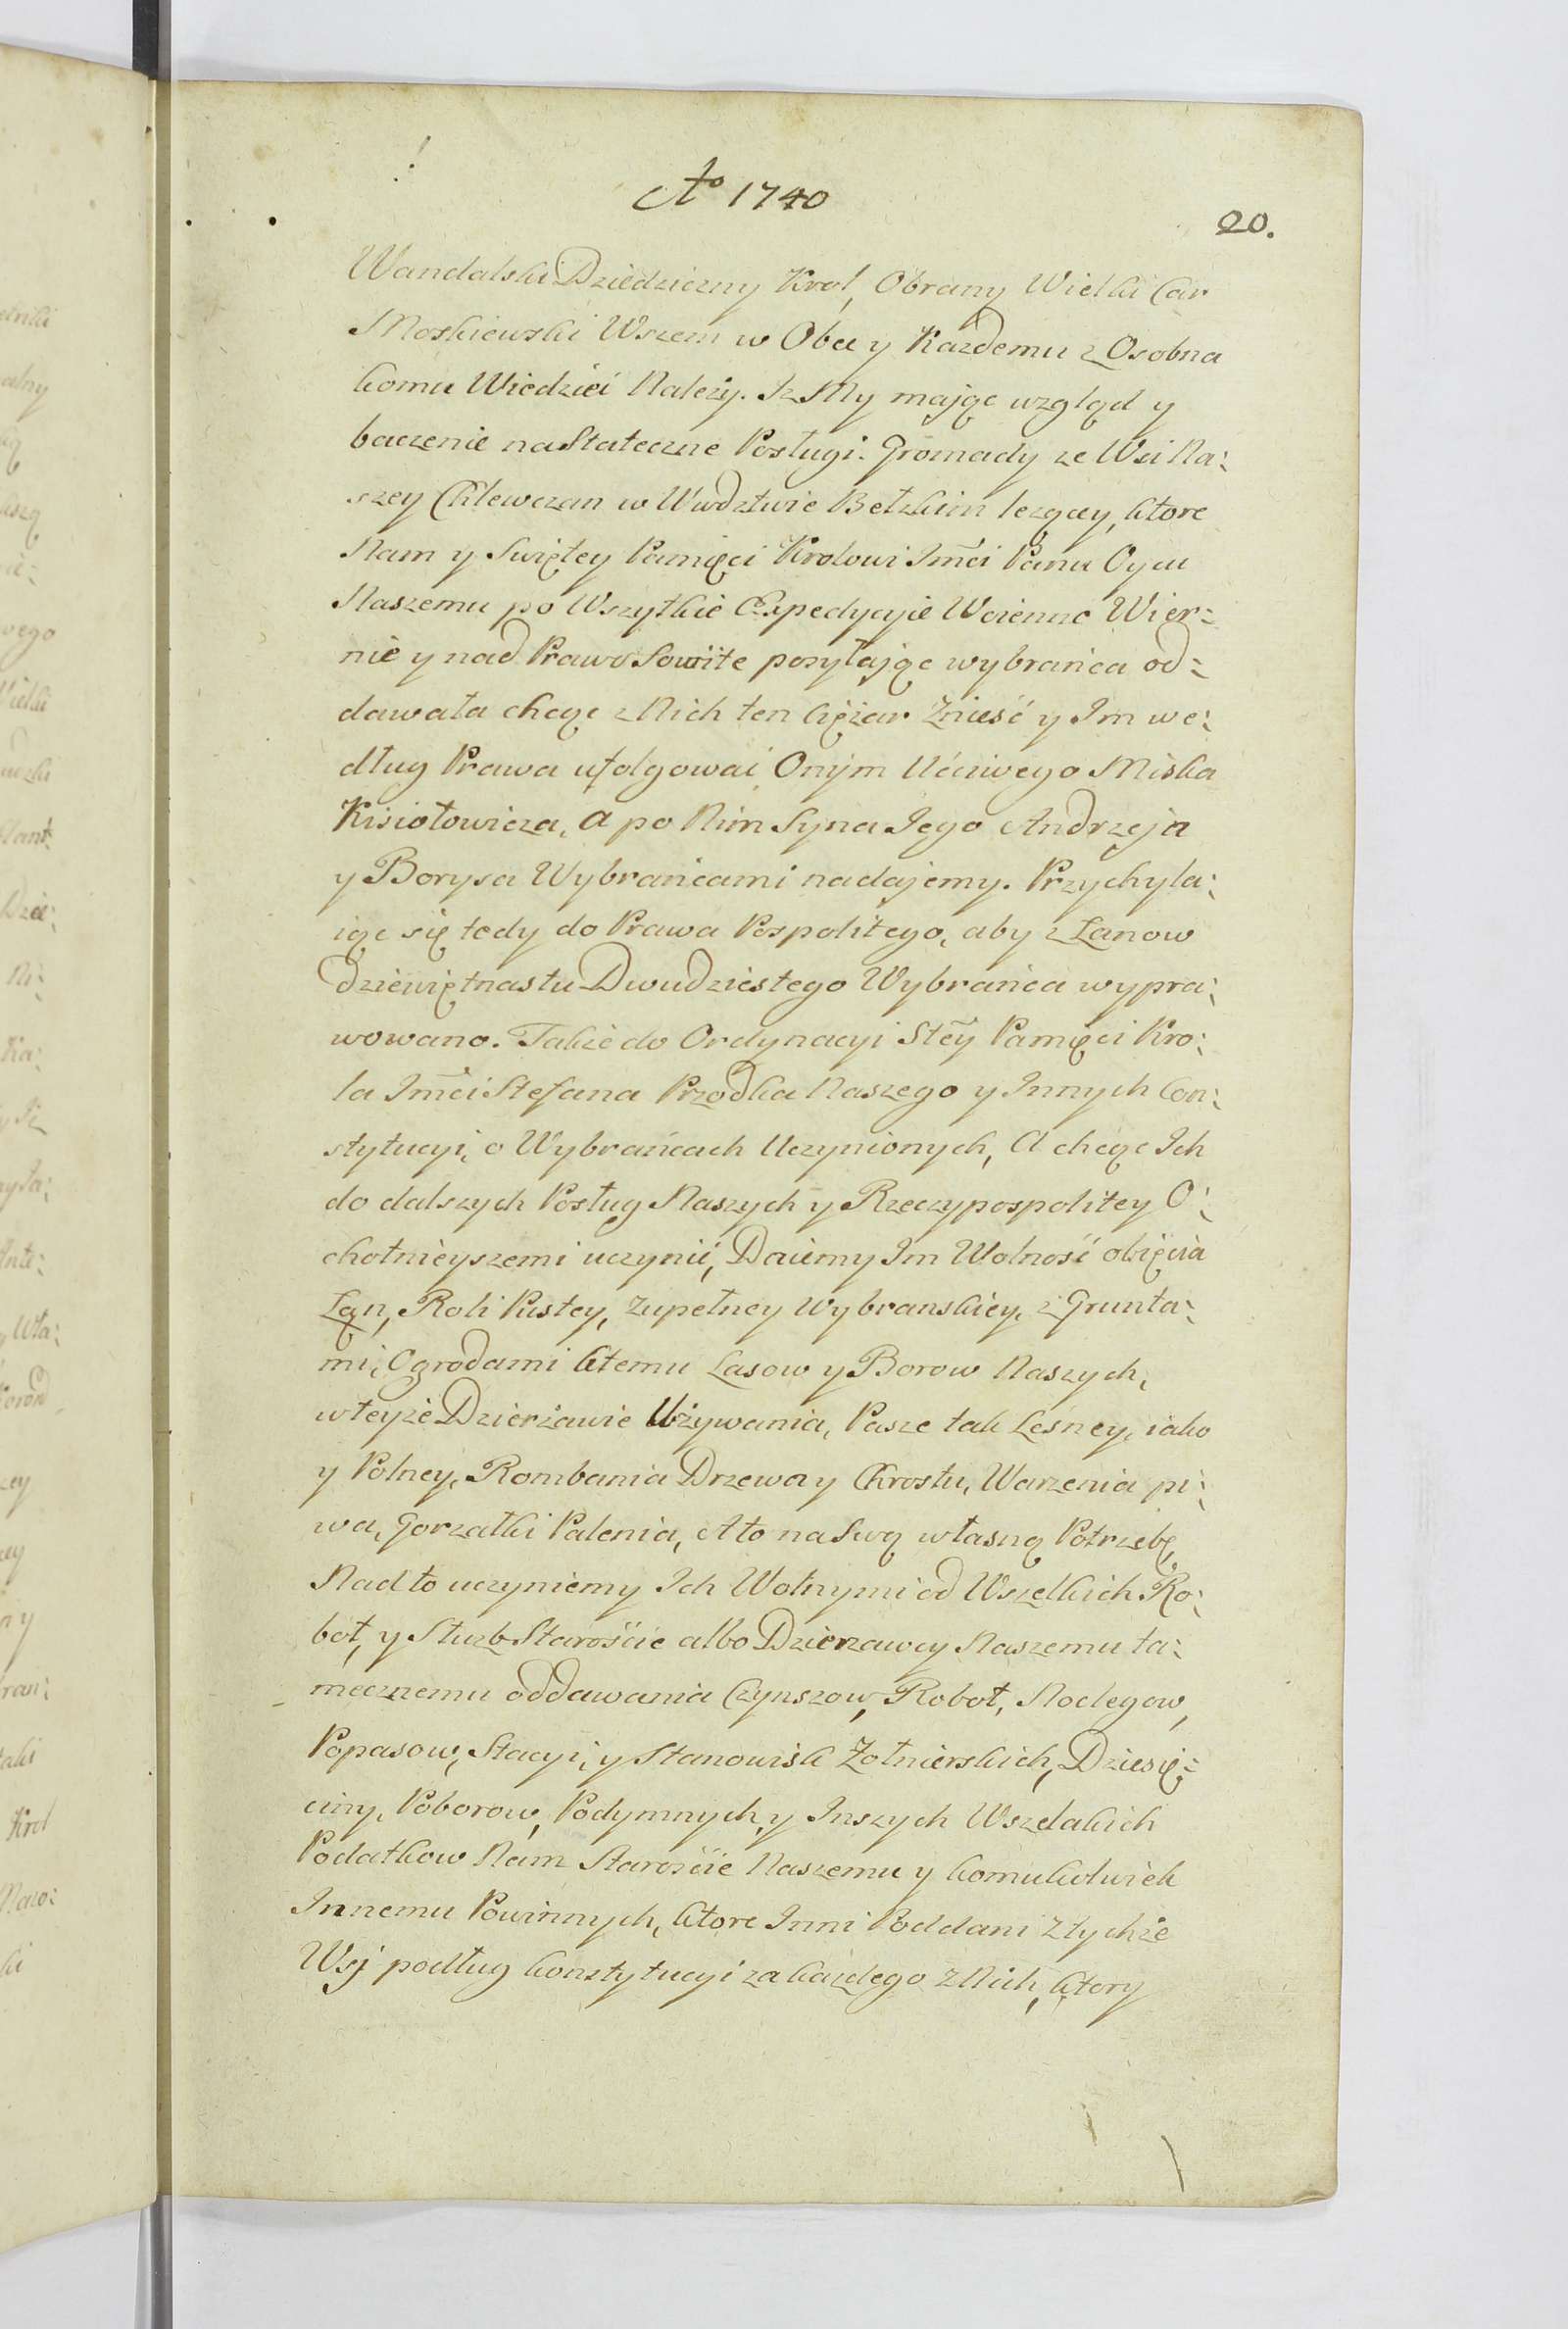 Ao 1740
20.
Wandalski Dziedziczny Krol, Obrany Wielki Car
Moskiewski Wszem w Obec y Kazdemu z Osobna
komu Wiedzieć Należy. Iz My mając wzgląd y
baczenie na Stateczne Posługi Gromady ze Wsi Na:
szey Chlewczan w Wwdztwie Bełzkim lezącey, ktore
Nam y Swiętey Pamięci Krolowi Jmci Panu Oycu
Naszemu po Wszytkie Expedycyie Woienne Wier:
nie y nad Prawo Sowite posyłając wybrańca od:
dawała chcąc z Nich ten Ciężar Znieść y Im we:
dług Prawa ufolgować Onym Uczciwego Miska
Kisiołowicza, a po Nim Syna Jego Andrzeja
y Borysa Wybrańcami nadajemy. Przychyla:
iąc się tedy do Prawa Pospolitego, aby z Łanow
dziewiętnastu Dwudziestego Wybrańca wypra:
wowano. Także do Ordynacyi Stey Pamięci Kro:
la Jmci Stefana Przodka Naszego y Innych Con:
stytucyi, o Wybrańcach Uczynionych, A chcąc Ich
do dalszych Posług Naszych y Rzeczypospolitey O:
chotnieyszemi uczynić, Daiemy Im Wolność obięcia
Łan, Roli Pustey, Zupełney Wybranskiey, z Grunta:
mi, Ogrodami ktemu Lasow y Borow Naszych,
wteyże Dzierżawie Używania, Pasze tak Leśney, iako
y Polney, Rombania Drzewa y Chrostu, Warzenia pi:
wa, Gorzałki Palenia, A to na Swą własną Potrzebę,
Nad to uczyniemy Ich Wolnymi od Wszelkich Ro:
bot, y Służb Staroście albo Dzierzawcy Naszemu ta:
mecznemu oddawania Czynszow, Robot, Noclegow,
Popasow, Stacyi, y Stanowisk Żołnierskich, Dziesię:
ciny, Poborow, Podymnych, y Inszych Wszelakich
Podatkow Nam Starościе Naszemu y komukolwiek
Innemu Powinnych, ktore Inni Poddani Z tychże
Wsj podług Konstytucyi za każdego z Nich, ktory